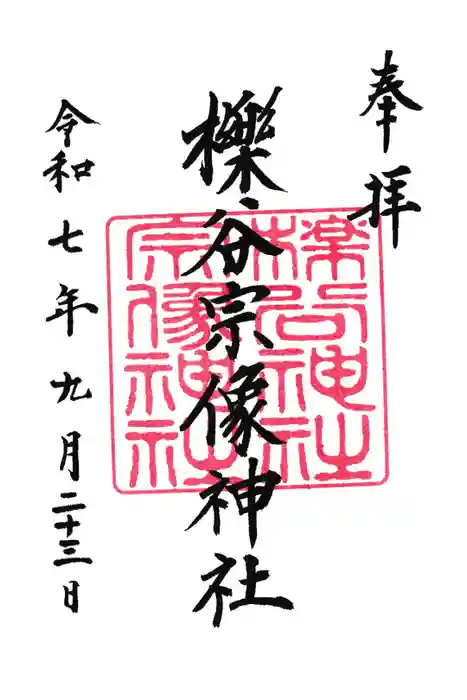 奉拝
櫟谷宗像神社
令和七年九月二十三日
櫟谷神社
宗像神社